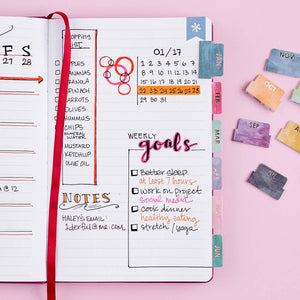 F S
27 28
SHOPPING
LIST
APPLES
BANANAS
GRANOLA
SPINACH
CARROTS
OLIVES
HUMMUS
CHIPS
MINERAL
WATER
MUSTARD
KETCHUP
OLIVE OIL
01/17
1 2 3 4 5 6 7
8 9 10 11 12 13 14
15 16 17 18 19 20 21
22 23 24 25 26 27 28
29 30 31
WEEKLY
goals
Better sleep
at least 7 hours
work on project
social media
cook dinner
healthy eating
stretch / yoga
NOTES
HALEY'S EMAIL
1derful@me.com
@ 12
JAN
FEB
MAR
APR
MAY
JUN
NOV
OCT
SEP
AUG
JUL